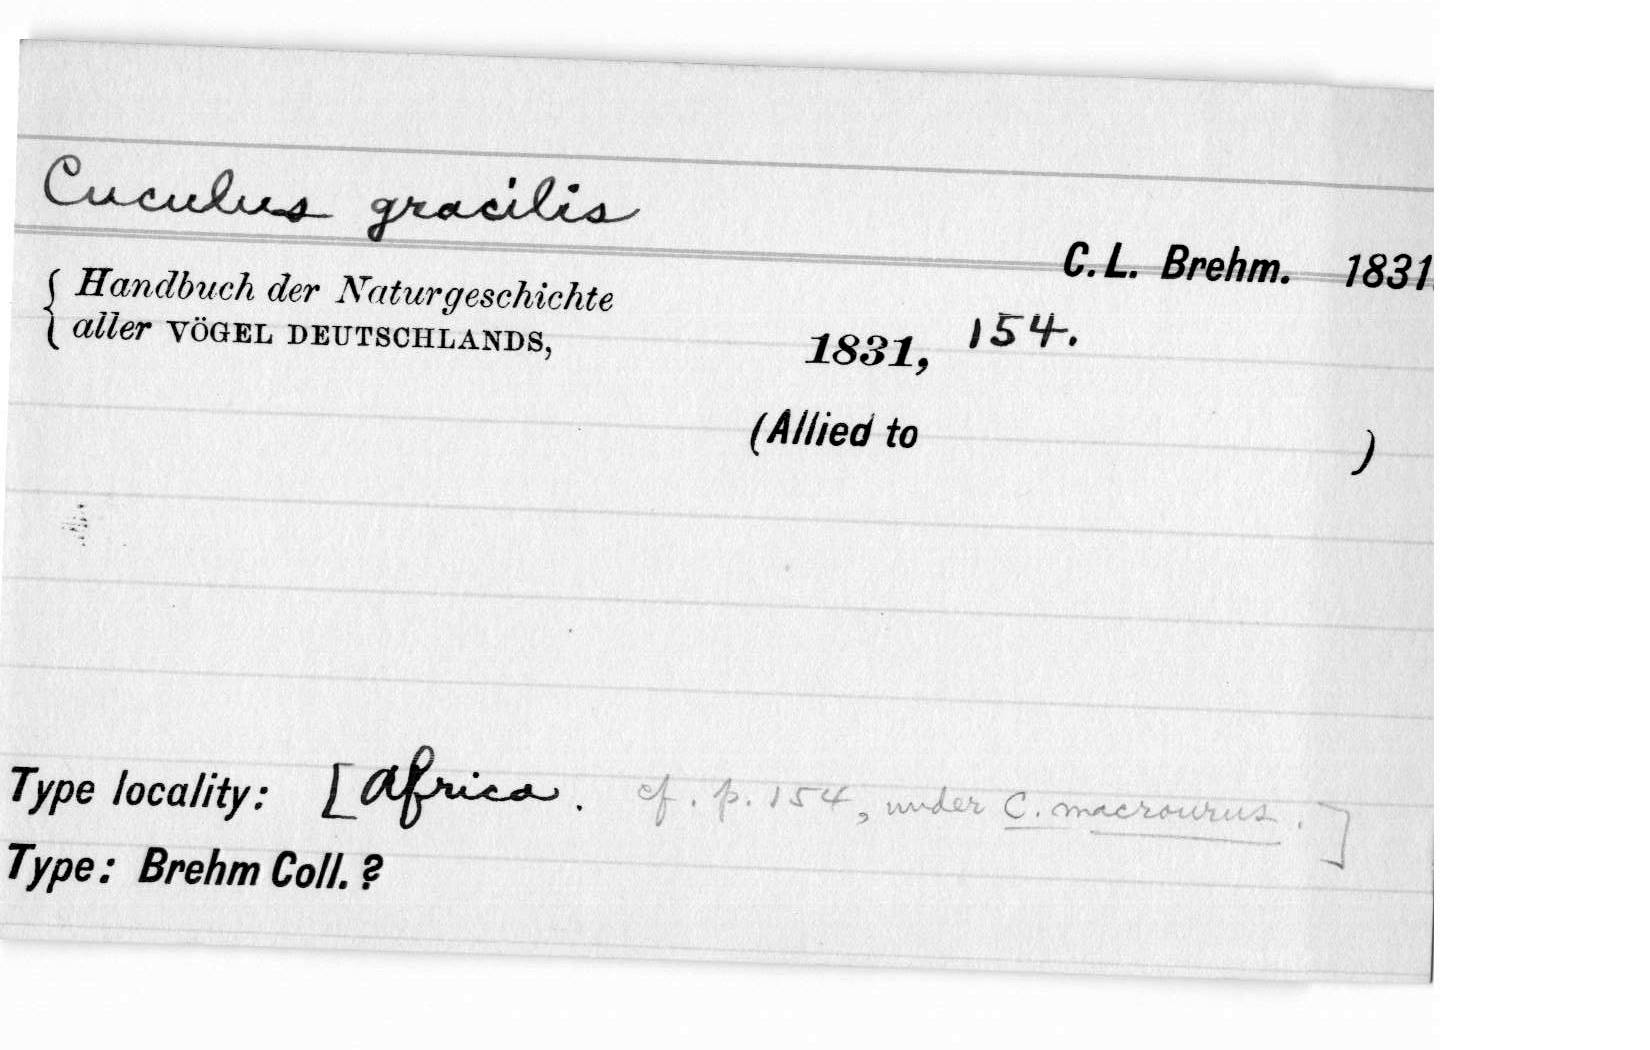 Cuculus gracilis
C. L. Brehm. 1831
{ Handbuch der Naturgeschichte
aller VÖGEL DEUTSCHLANDS, 1831, 154.
(Allied to )
Type locality: [Africa. cf. p. 154, under C. macrourus.]
Type: Brehm Coll. ?